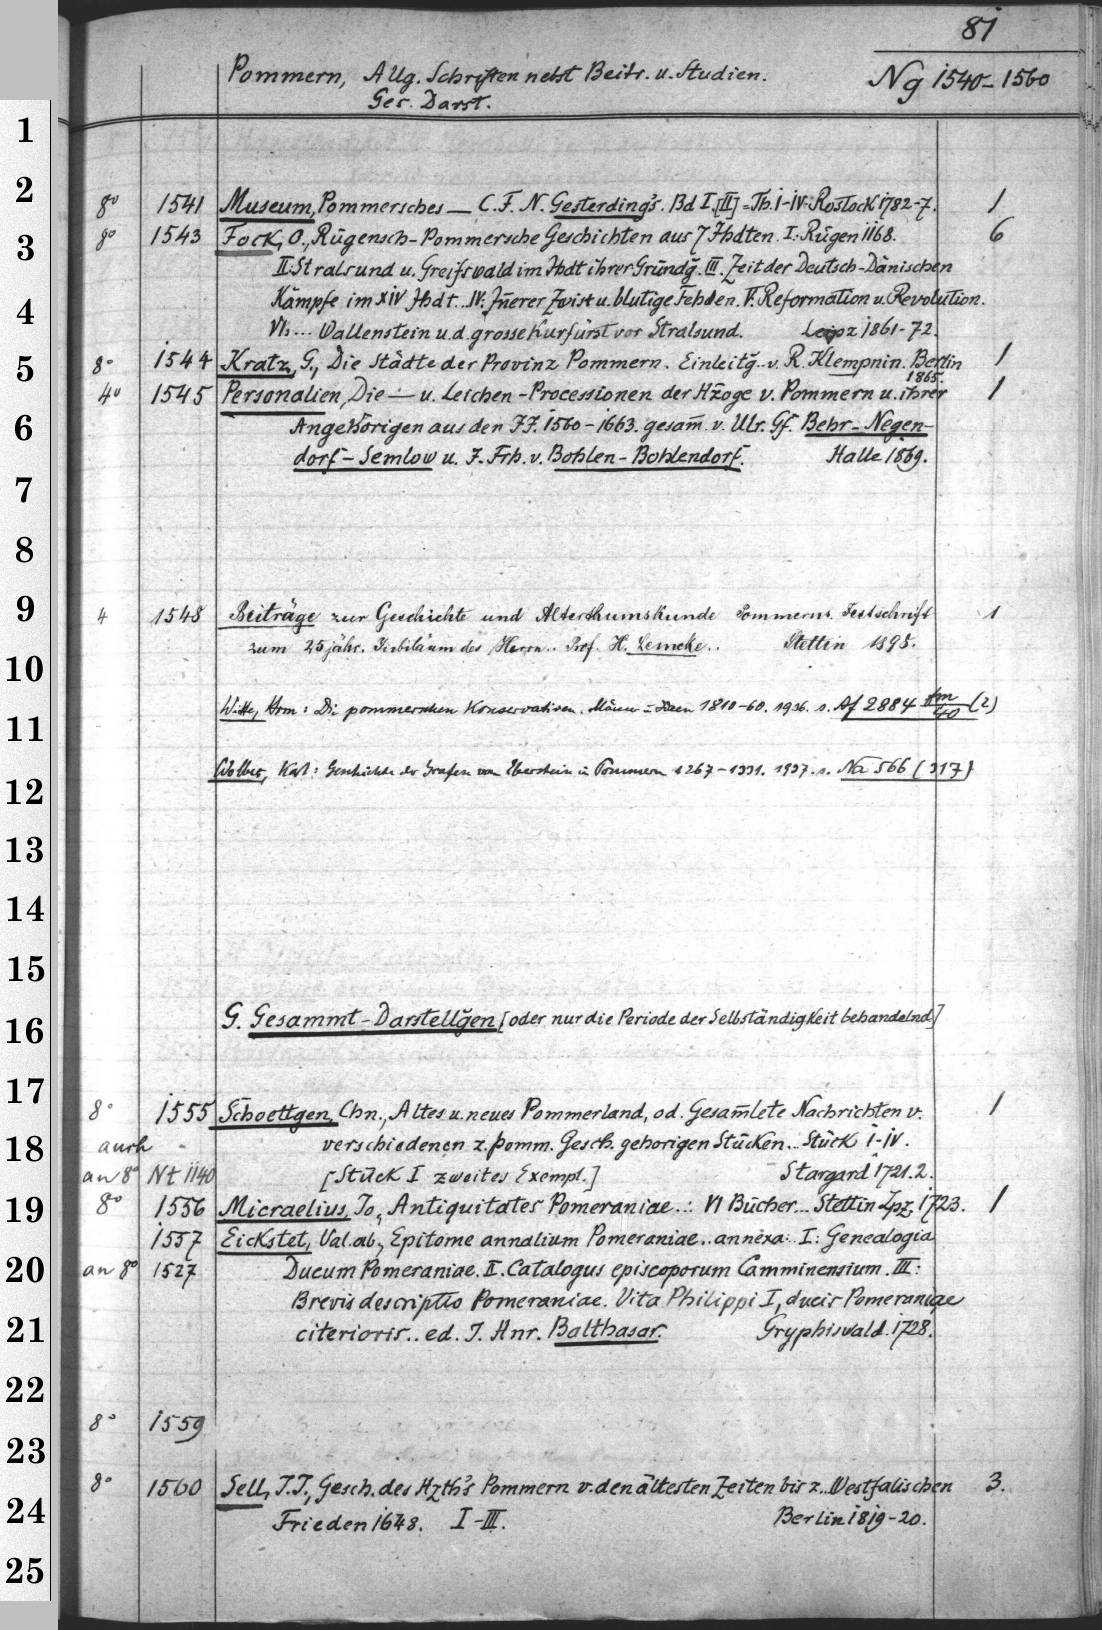 81
Pommern, Allg. Schriften nebst Beitr. u. Studien. Ng 1540-1560
Ges. Darst.
1
2
8° 1541 Museum, Pommersches — C. F. N. Gesterding's. Bd I.[II] = Th. I-IV. Rostock 1782-7. 1
3 8° 1543 Fock, O., Rügensch-Pommersche Geschichten aus 7 Jhdten. I: Rügen 1168. 6
II: Stralsund u. Greifswald im Jhdt ihrer Gründg. III. Zeit der Deutsch-Dänischen
4 Kämpfe im XIV Jhdt.. IV. Innerer Zwist u. blutige Fehden. V. Reformation u. Revolution.
VI:... Wallenstein u. d. grosse Kurfürst vor Stralsund. Leipz 1861-72.
5 8° 1544 Kratz, G., Die Städte der Provinz Pommern. Einleitg. v. R. Klempnin. Berlin 1
1865.
4° 1545 Personalien, Die — u. Leichen-Processionen der Hzoge v. Pommern u. ihrer 1
6 Angehörigen aus den JJ. 1560-1663. gesam̄. v. Ulr. Gf. Behr-Negen-
dorf-Semlow u. J. Frh. v. Bohlen-Bohlendorf. Halle 1869.
7
8
9 4 1548 Beiträge zur Geschichte und Alterthumskunde Pommerns. Festschrift 1
zum 25jähr. Jubiläum des Herrn.. Prof. H. Lemcke.. Stettin 1898.
10
11 Witte, Hrm: Die pommerschen Konservativen. Männer u. Ideen 1810-60. 1936. s. Af 2884 (2)
40
Wolber, Karl: Geschichte der Grafen von Eberstein in Pommern 1267-1331. 1937. s. Na 566 (317)
12
13
14
15
16 G. Gesammt-Darstellg̃en [oder nur die Periode der Selbständigkeit behandelnd]
17
8° 1555 Schoettgen, Chn., Altes u. neues Pommerland, od. Gesam̄lete Nachrichten v. 1
18 auch - verschiedenen z. pomm. Gesch. gehorigen Stücken.. Stück I-IV.
an 8° Nt 1140 [Stück I zweites Exempl.] Stargard 1721.2.
19 8° 1556 Micraelius, Jo., Antiquitates Pomeraniae.: VI Bücher... Stettin Lpz. 1723. 1
1557 Eickstet, Val. ab., Epitome annalium Pomeraniae.. annexa: I: Genealogia
20 an 8° 1527 Ducum Pomeraniae. II. Catalogus episcoporum Camminensium. III:
Brevis descriptio Pomeraniae. Vita Philippi I, ducis Pomeraniae
21 citerioris.. ed. J. Hnr. Balthasar. Gryphiswald. 1728.
22
8° 1559
23
8° 1560 Sell, J.J., Gesch. des Hzth's Pommern v. den ältesten Zeiten bis z.. Westfalischen 3.
24 Frieden 1648. I-III. Berlin 1819-20.
25